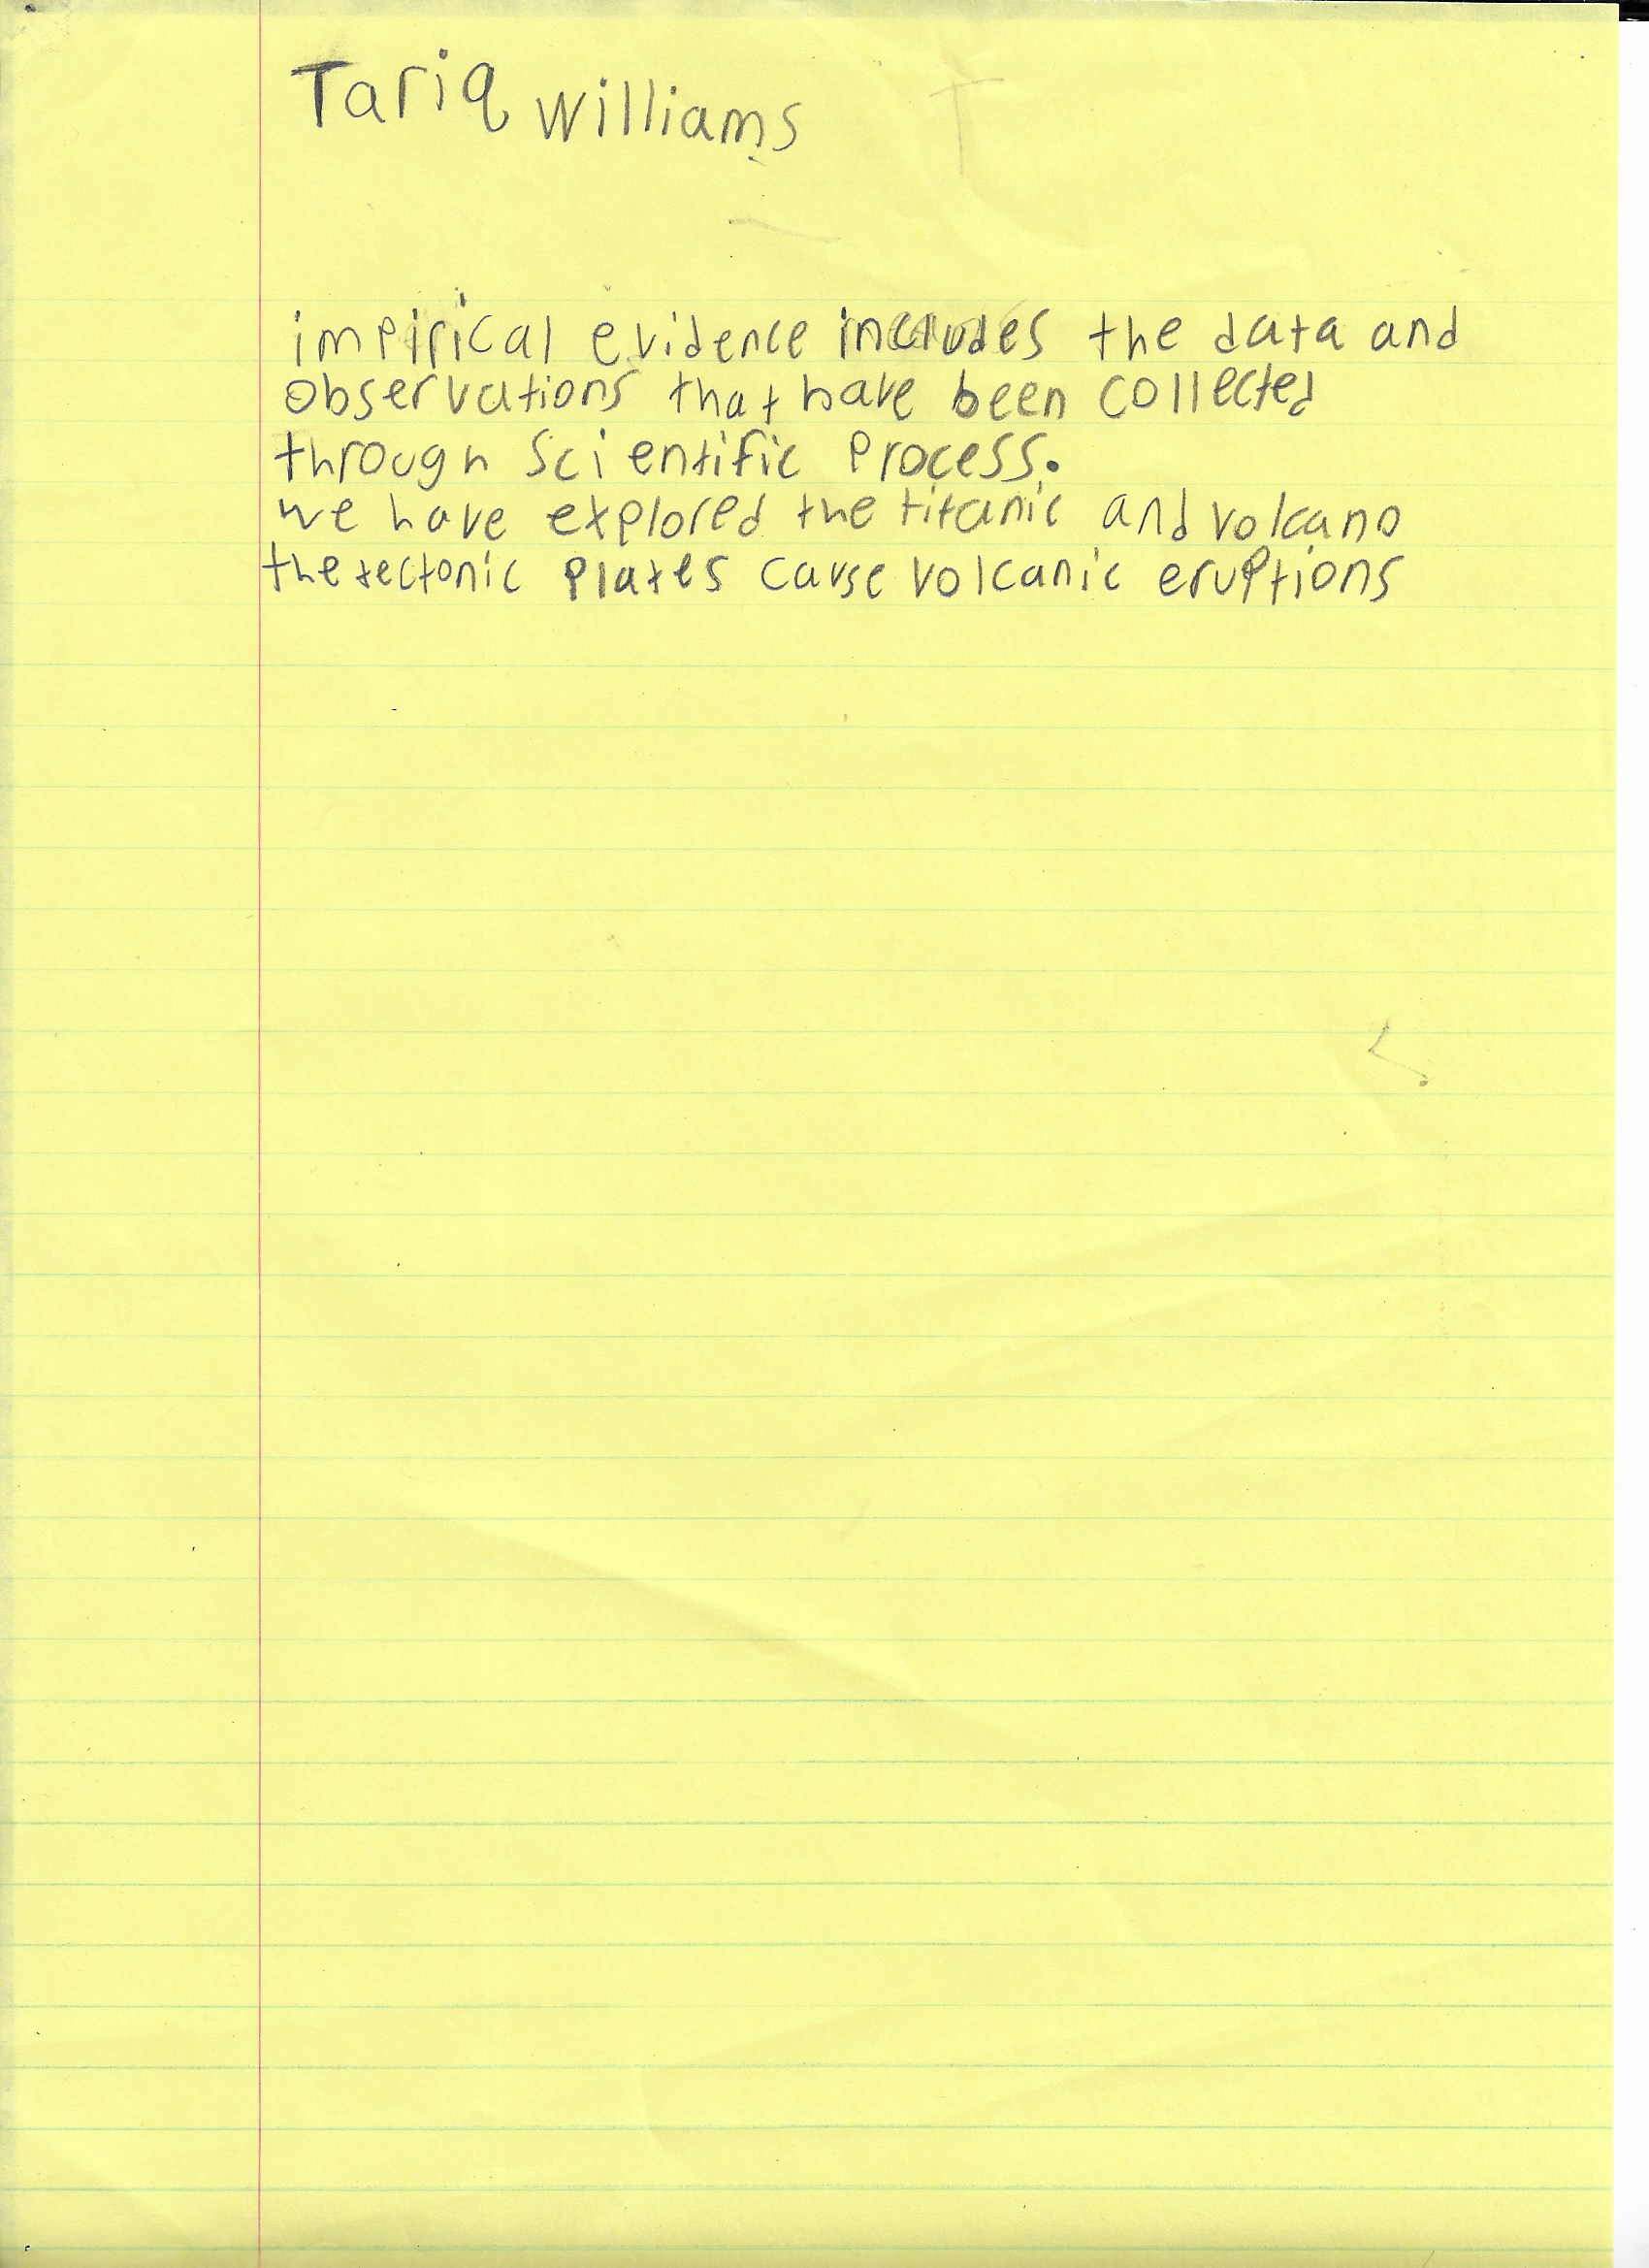 Tariq Williams
impirical evidence includes the data and
observations that have been collected
through scientific process.
we have explored the titanic and volcano
the tectonic plates cause volcanic eruptions